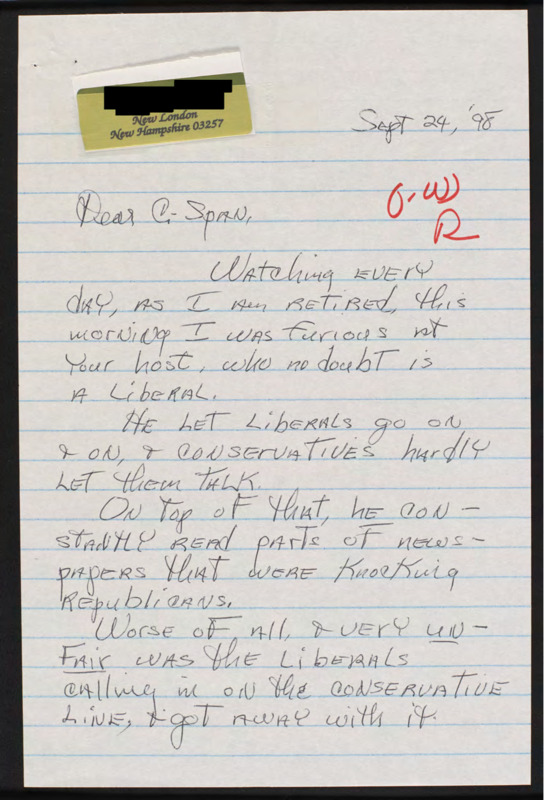 New London
New Hampshire 03257
Sept 24, '98
O.W
R
Dear C-Span,
Watching every
day, as I am retired, this
morning I was furious at
your host, who no doubt is
a liberal.
He let liberals go on
& on, & conservatives hardly
let them talk.
On top of that, he con-
stantly read parts of news-
papers that were knocking
Republicans.
Worse of all, & very un-
fair was the liberals
calling in on the conservative
line, & got away with it.